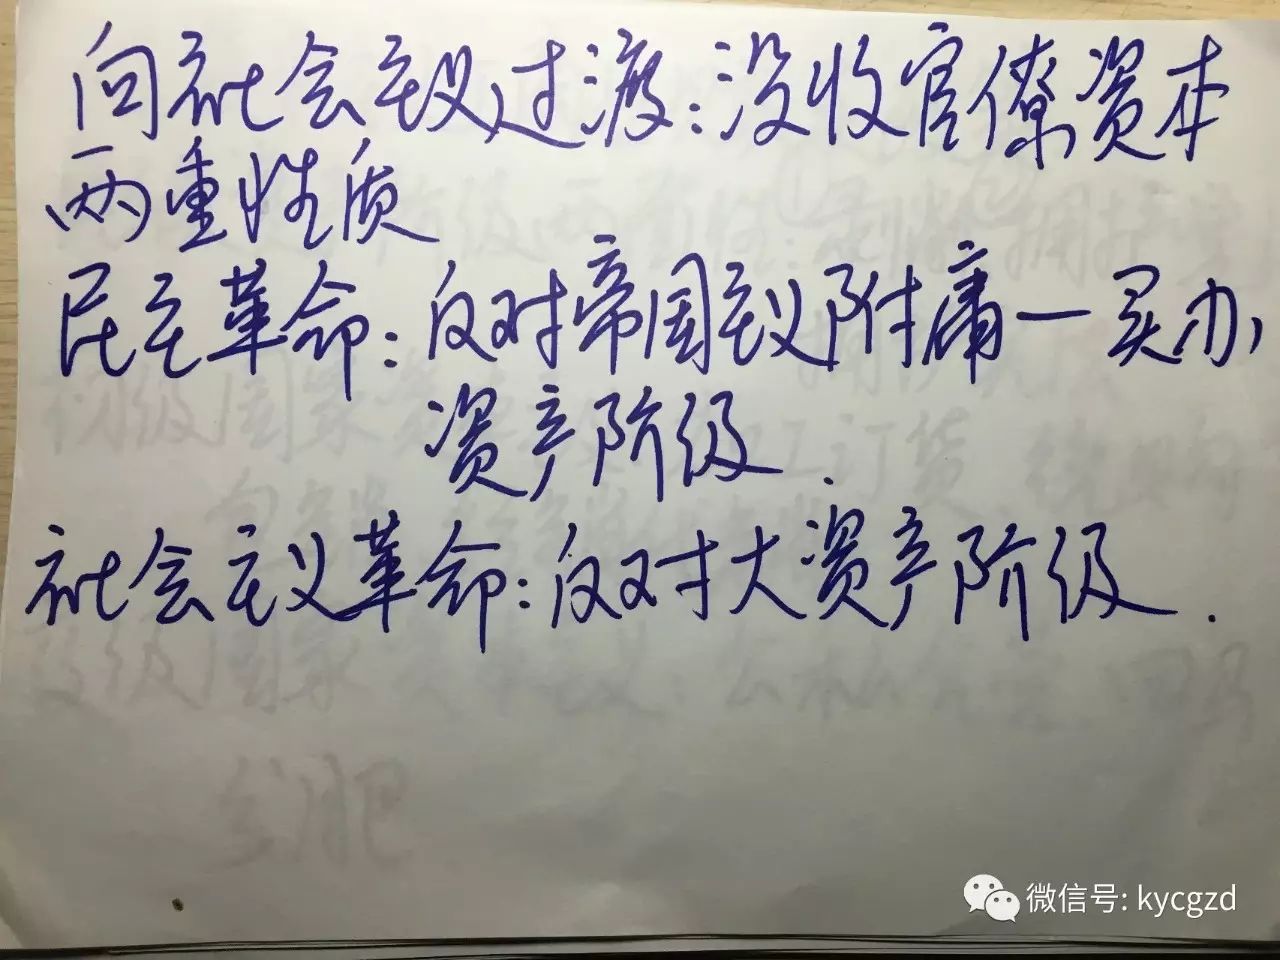 向社会主义过渡:没收官僚资本
两重性质
民主革命:反对帝国主义附庸一买办
资产阶级.
社会主义革命:反对大资产阶级.
微信号: kycgzd